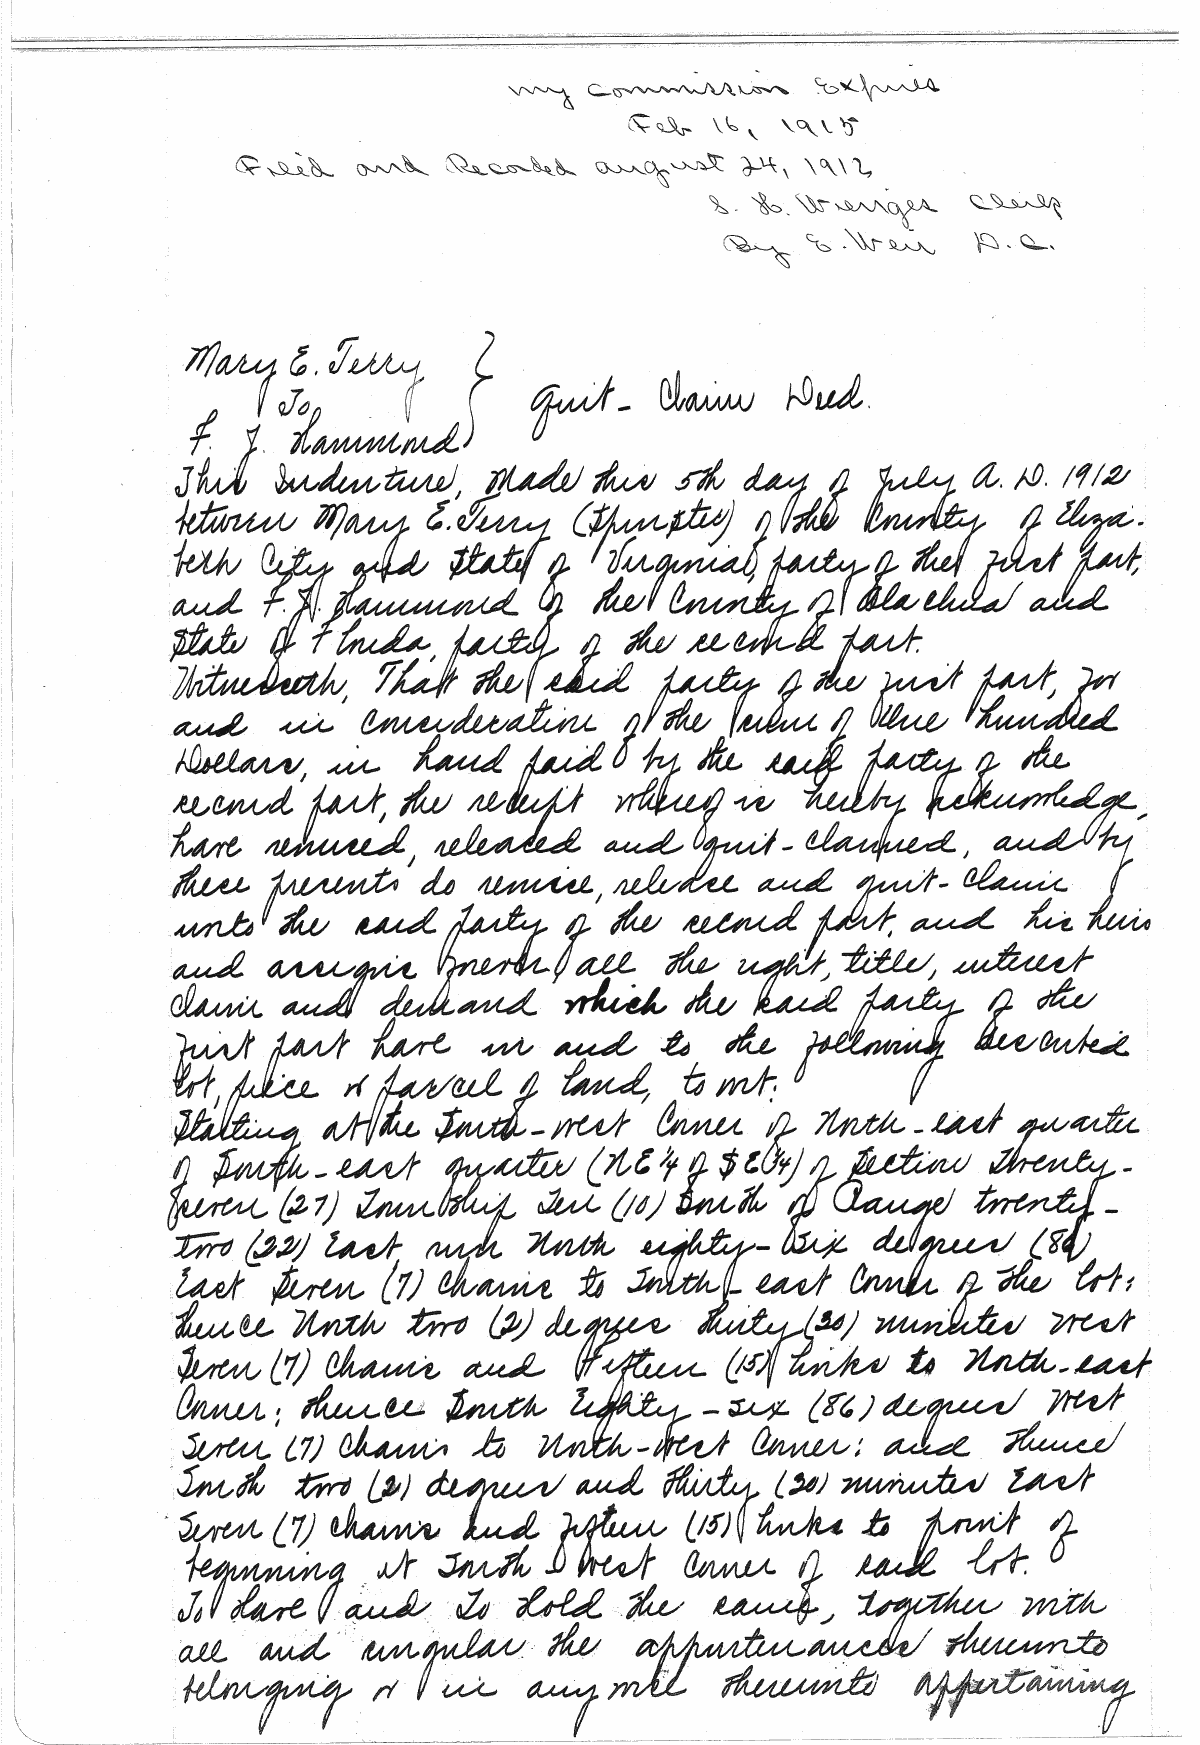 My Commission Expires
Feb 16, 1915
Filed and Recorded august 24, 1912
S. H. Wienges Clerk
By E. Weir D.C.
Mary E. Terry
To
F. J. Hammond
Quit-Claim Deed.
This Indenture, Made this 5th day of July A.D. 1912
between Mary E. Terry (Spinster) of the County of Eliza-
beth City and State of Virginia, party of the first part,
and F. J. Hammond of the County of Alachua and
State of Florida, party of the second part.
Witnesseth, That the said party of the first part, for
and in consideration of the sum of One hundred
Dollars, in hand paid by the said party of the
second part, the receipt whereof is hereby acknowledge,
have remised, released and quit-claimed, and by
these presents do remise, release and quit-claim
unto the said party of the second part, and his heirs
and assigns forever, all the right, title, interest
claim and demand which the said party of the
first part have in and to the following described
lot, piece or parcel of land, to wit:
Starting at the South-west Corner of North-east quarter
of South-east quarter (NE¼ of SE¼) of Section Twenty-
seven (27) Township Ten (10) South of Range twenty-
two (22) East, run North eighty-six degrees (86)
East Seven (7) Chains to South-east Corner of the lot;
thence North two (2) degrees thirty (30) minutes West
Seven (7) Chains and Fifteen (15) links to North-east
Corner; thence South Eighty-six (86) degrees West
Seven (7) Chains to North-west Corner; and thence
South two (2) degrees and thirty (30) minutes East
Seven (7) Chains and fifteen (15) links to point of
beginning at South West Corner of said lot.
To Have and To Hold the same, together with
all and singular the appurtenances thereunto
belonging or in anywise thereunto appertaining